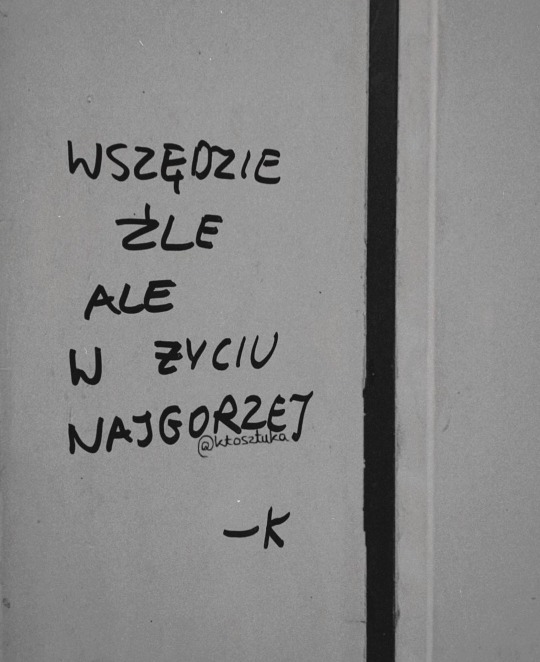 WSZĘDZIE
ŹLE
ALE
W ŻYCIU
NAJGORZEJ
@ktosztuka
–K